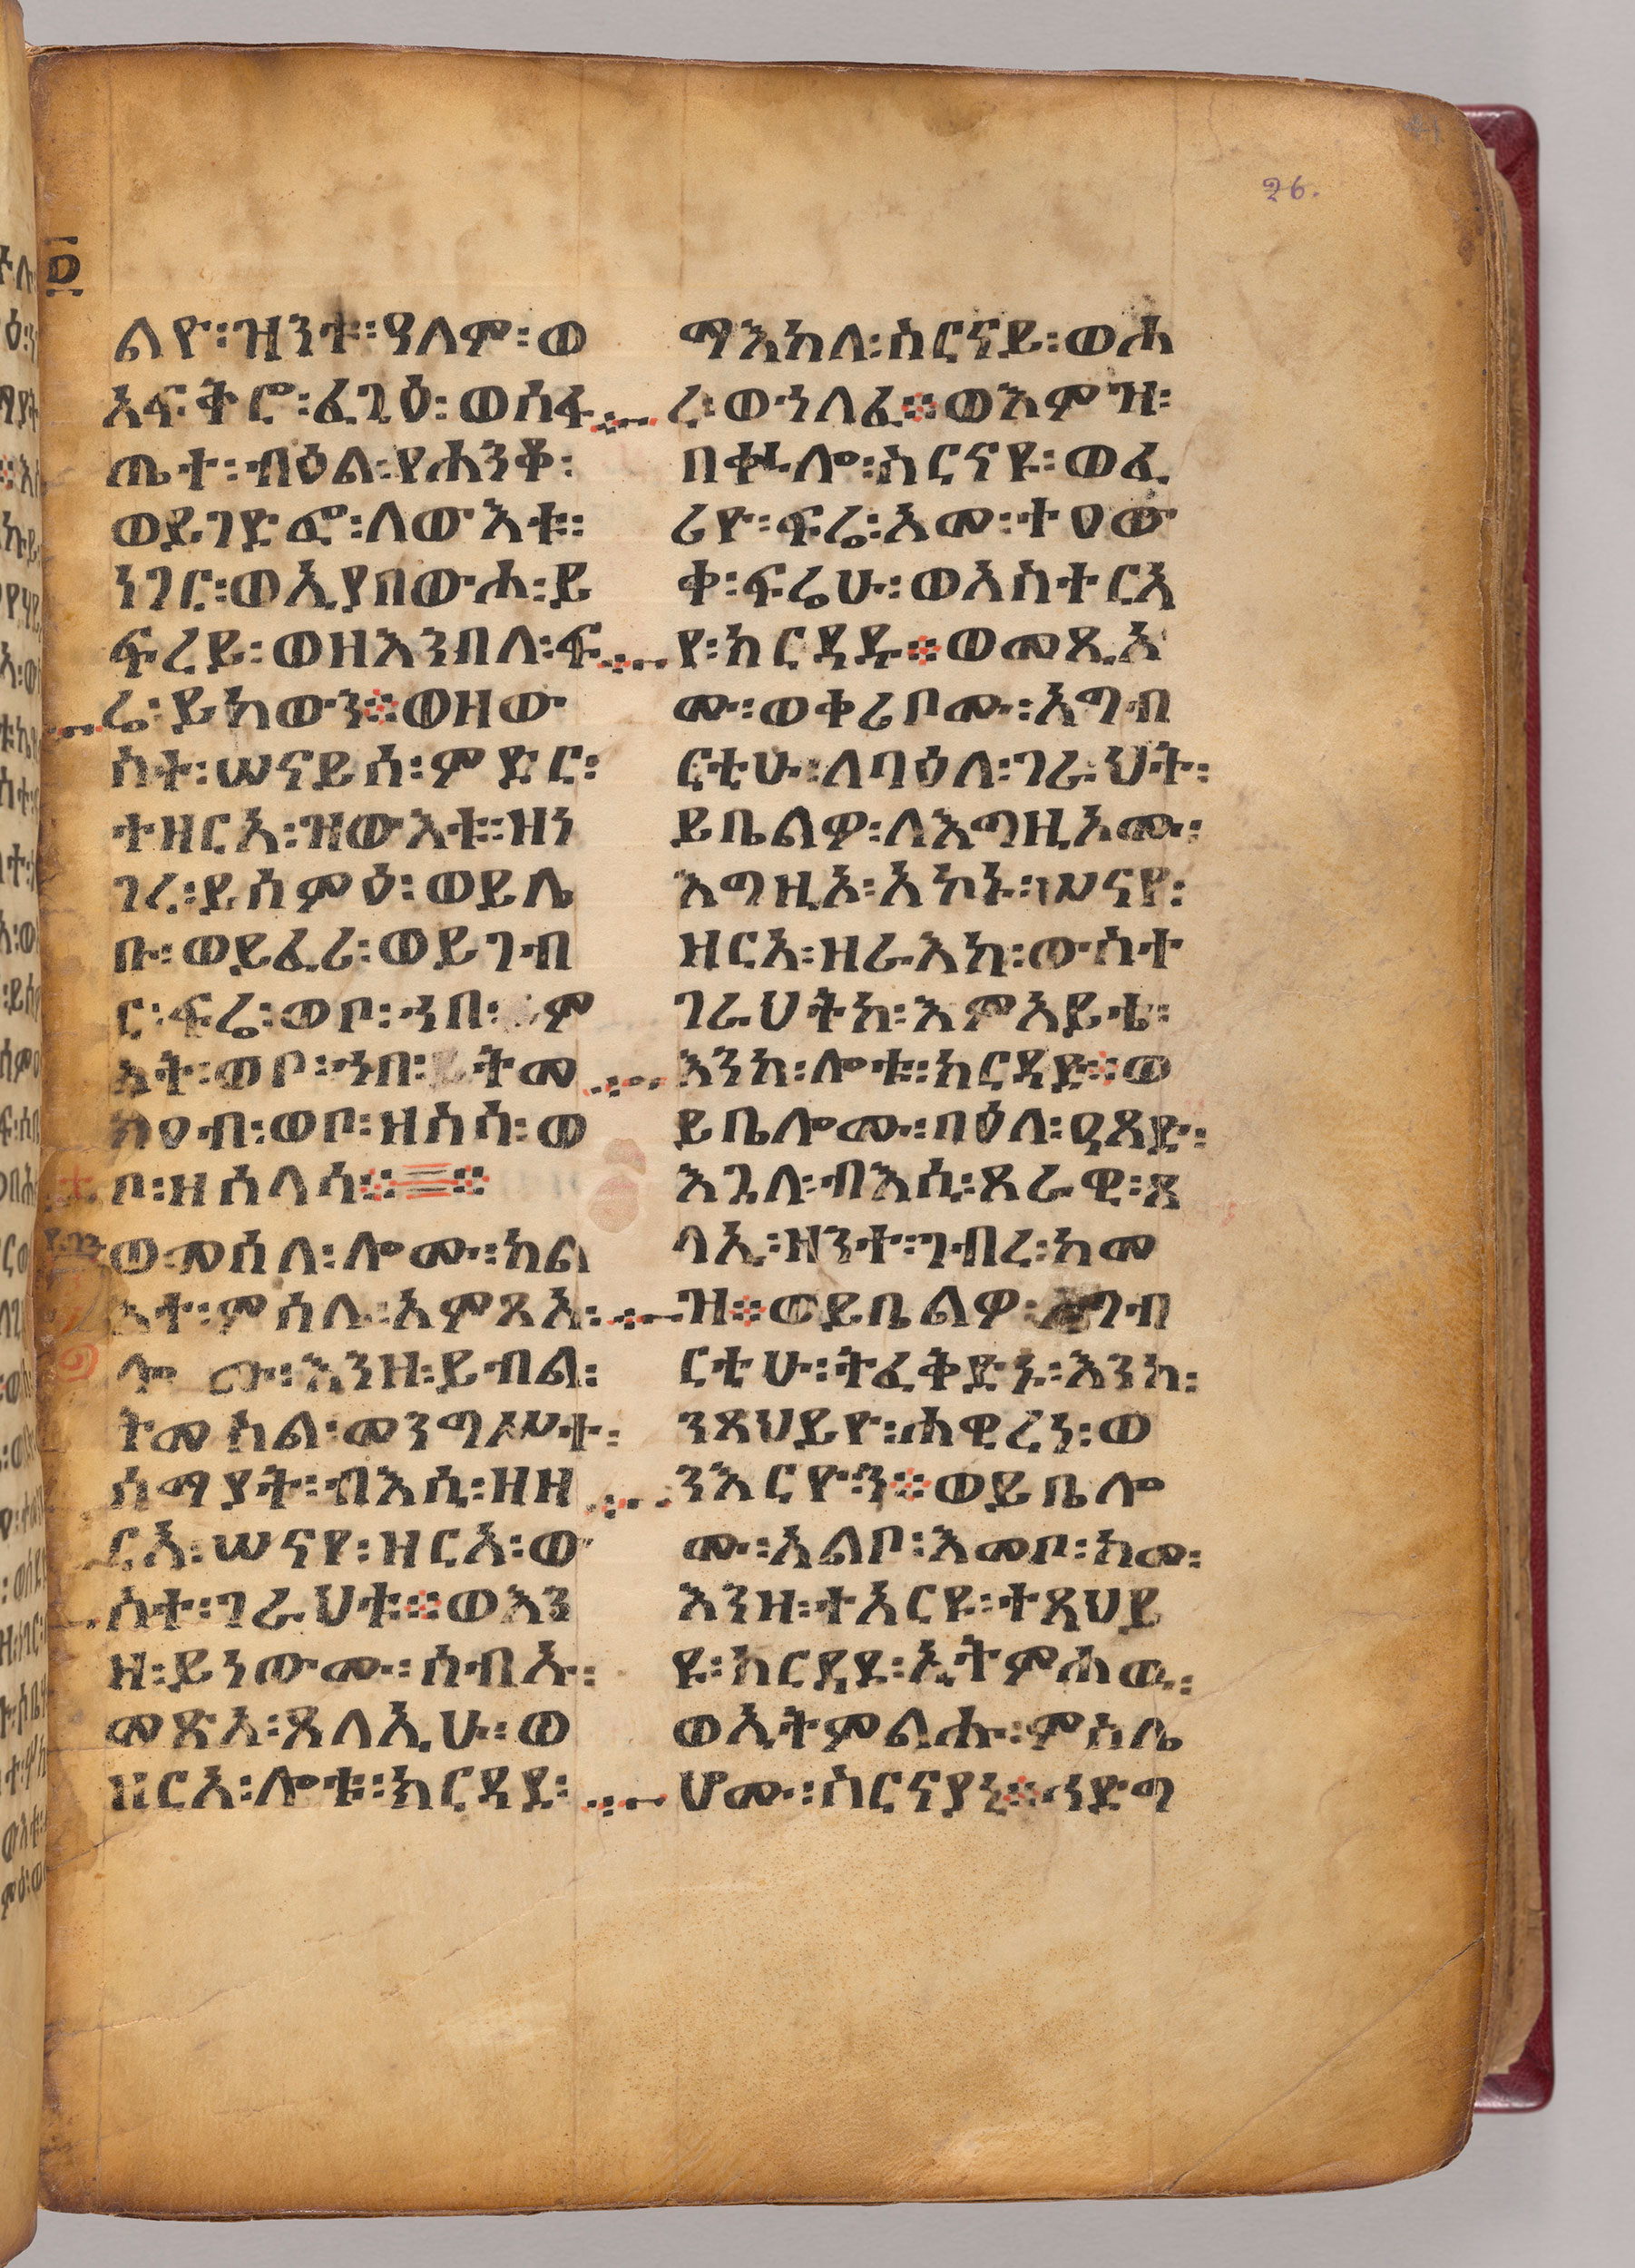 26.
፬
ልዮ፡ዝንቱ፡ዓለም፡ወ
አፍቅሮ፡ፈጊዕ፡ወስፋ
ጤተ፡ብዕል፡የሐንቆ፡
ወይገድፎ፡ለውእቱ፡
ነገር፡ወኢያበውሐ፡ይ
ፍረይ፡ወዘእንበለ፡ፍ
ሬ፡ይከውን፨ወዘው
ስተ፡ሠናይሰ፡ምድር፡
ተዘርአ፡ዝውእቱ፡ዘነ
ገረ፡ይሰምዕ፡ወይሌ
ቡ፡ወይፈሪ፡ወይገብ
ር፡ፍሬ፡ወቦ፡ኀበ፡ም
እት፡ወቦ፡ኀበ፡ይትመ
አዐብ፡ወቦ፡ዘስሳ፡ወ
ቦ፡ዘሰላሳ፨፨
ወመሰለ፡ሎሙ፡ካል
እተ፡ምሳሌ፡አምጽአ፡
ሎሙ፡እንዘ፡ይብል፡
ትመስል፡መንግሥተ፡
ሰማያት፡ብእሲ፡ዘዘ
ርአ፡ሠናየ፡ዘርአ፡ው
ስተ፡ገራህቱ፨ወእን
ዘ፡ይነውሙ፡ሰብኡ፡
መጽአ፡ጸላኢሁ፡ወ
ዘርአ፡ሎቱ፡ክርዳደ፡
ማእከለ፡ስርናይ፡ወሐ
ረ፡ወኀለፈ፨ወእምዝ፡
በቈሎ፡ስርናዩ፡ወፈ
ሪዮ፡ፍሬ፡አመ፡ተዐው
ቀ፡ፍሬሁ፡ወአስተርአ
የ፡ክርዳዱ፨ወመጺኦ
ሙ፡ወቀሪቦሙ፡አግብ
ርቲሁ፡ለባዕለ፡ገራህት፡
ይቤልዎ፡ለእግዚኦሙ፡
እግዚኦ፡አኮኑ፡ሠናየ፡
ዘርአ፡ዘራእከ፡ውስተ
ገራህትከ፡እምአይቴ፡
እንከ፡ሎቱ፡ክርዳድ፨ወ
ይቤሎሙ፡በዕለ፡ዐጸድ፡
እጓለ፡ብእሲ፡ጸራዊ፡ጸ
ላኢ፡ዘንተ፡ገብረ፡ከመ
ዝ፨ወይቤልዎ፡አግብ
ርቲሁ፡ትፈቅድኑ፡እንከ፡
ንጻህይዮ፡ሐዊረነ፡ወ
ንእርዮን፨ወይቤሎ
ሙ፡አልቦ፡እመቦ፡ከመ፡
እንዘ፡ተአርዩ፡ተጻህይ
ዩ፡ክርዳደ፡ኢትምሐዉ፡
ወኢትምልሑ፡ምስሌ
ሆሙ፡ስርናያነ፨ኅድግ